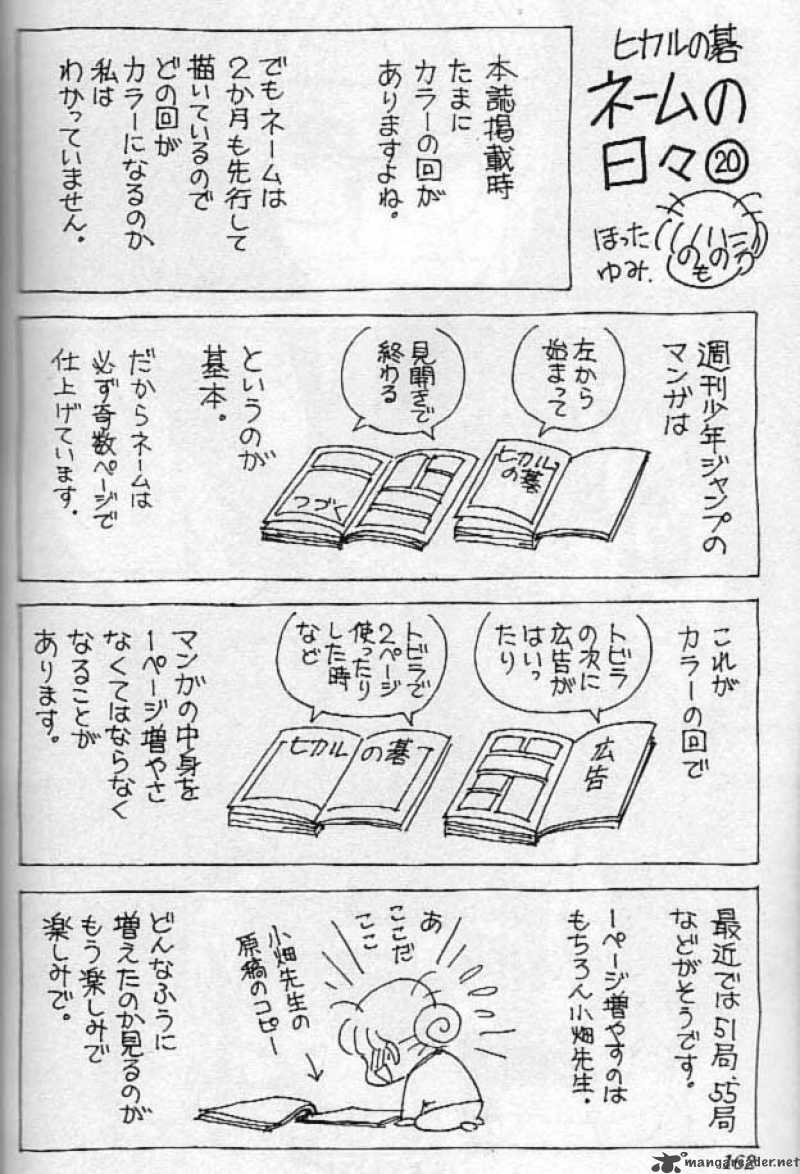 ヒカルの碁
ネームの
日々⑳
ほった
ゆみ.
本誌掲載時
たまに
カラーの回が
ありますよね。
でもネームは
2か月も先行して
描いているので
どの回が
カラーになるのか
私は
わかっていません。
週刊少年ジャンプの
マンガは
左から
始まって
ヒカル
の碁
見開きで
終わる
つづく
というのが
基本。
だからネームは
必ず奇数ページで
仕上げています.
これが
カラーの回で
トビラ
の次に
広告が
はいっ
たり
広告
トビラで
2ページ
使ったり
した時
など
ヒカルの碁
マンガの中身を
1ページ増やさ
なくてはならなく
なることが
あります。
最近では51局、55局
などがそうです。
1ページ増やすのは
もちろん小畑先生.
あ
ここだ
ここ
小畑先生の
原稿のコピー
どんなふうに
増えたのか見るのが
もう楽しみで
楽しみで。
162
mangareader.net